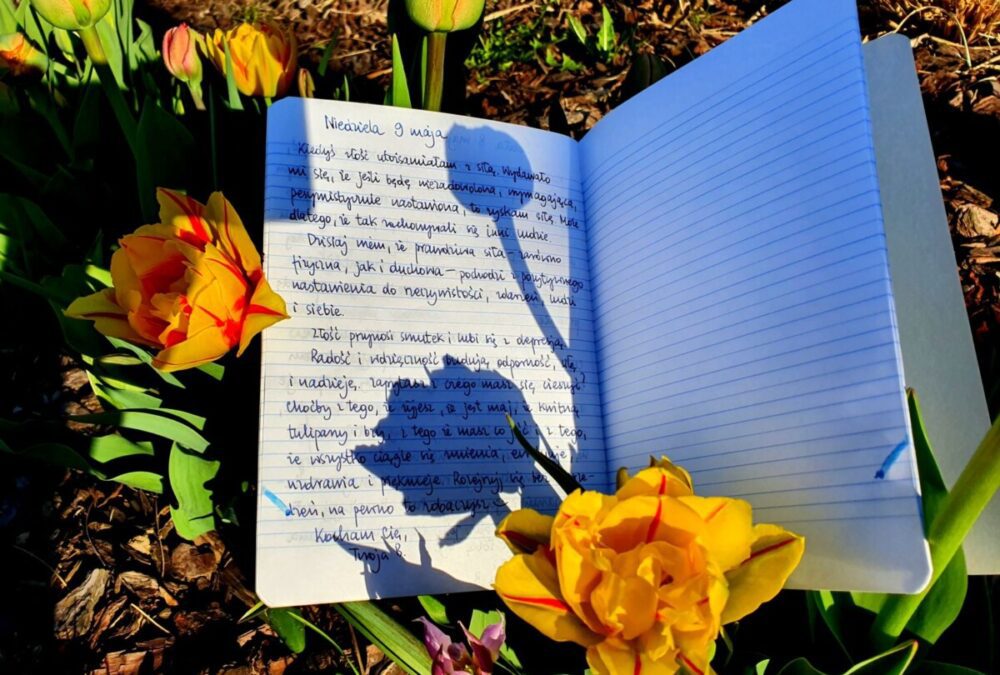 Niedziela 9 maja
Kiedyś złość utożsamiałam z siłą. Wydawało
mi się, że jeśli będę niezadowolona, wymagająca,
pesymistycznie nastawiona, to zyskam siłę. Może
dlatego, że tak zachowywali się inni ludzie.
Dzisiaj wiem, że prawdziwa siła zarówno
fizyczna, jak i duchowa – pochodzi z pozytywnego
nastawienia do rzeczywistości, zdarzeń, ludzi
i siebie.
Złość przynosi smutek i lubi się z depresją.
Radość i wdzięczność budują odporność, siłę
i nadzieję. Zapytasz z czego masz się cieszyć?
Choćby z tego, że żyjesz, że jest maj, że kwitną
tulipany i bzy, z tego że masz co jeść i z tego,
że wszystko ciągle się zmienia, ewoluuje
uzdrawia i pięknieje. Rozejrzyj się
dzień, na pewno to zobaczysz
Kocham Cię,
Twoja B.